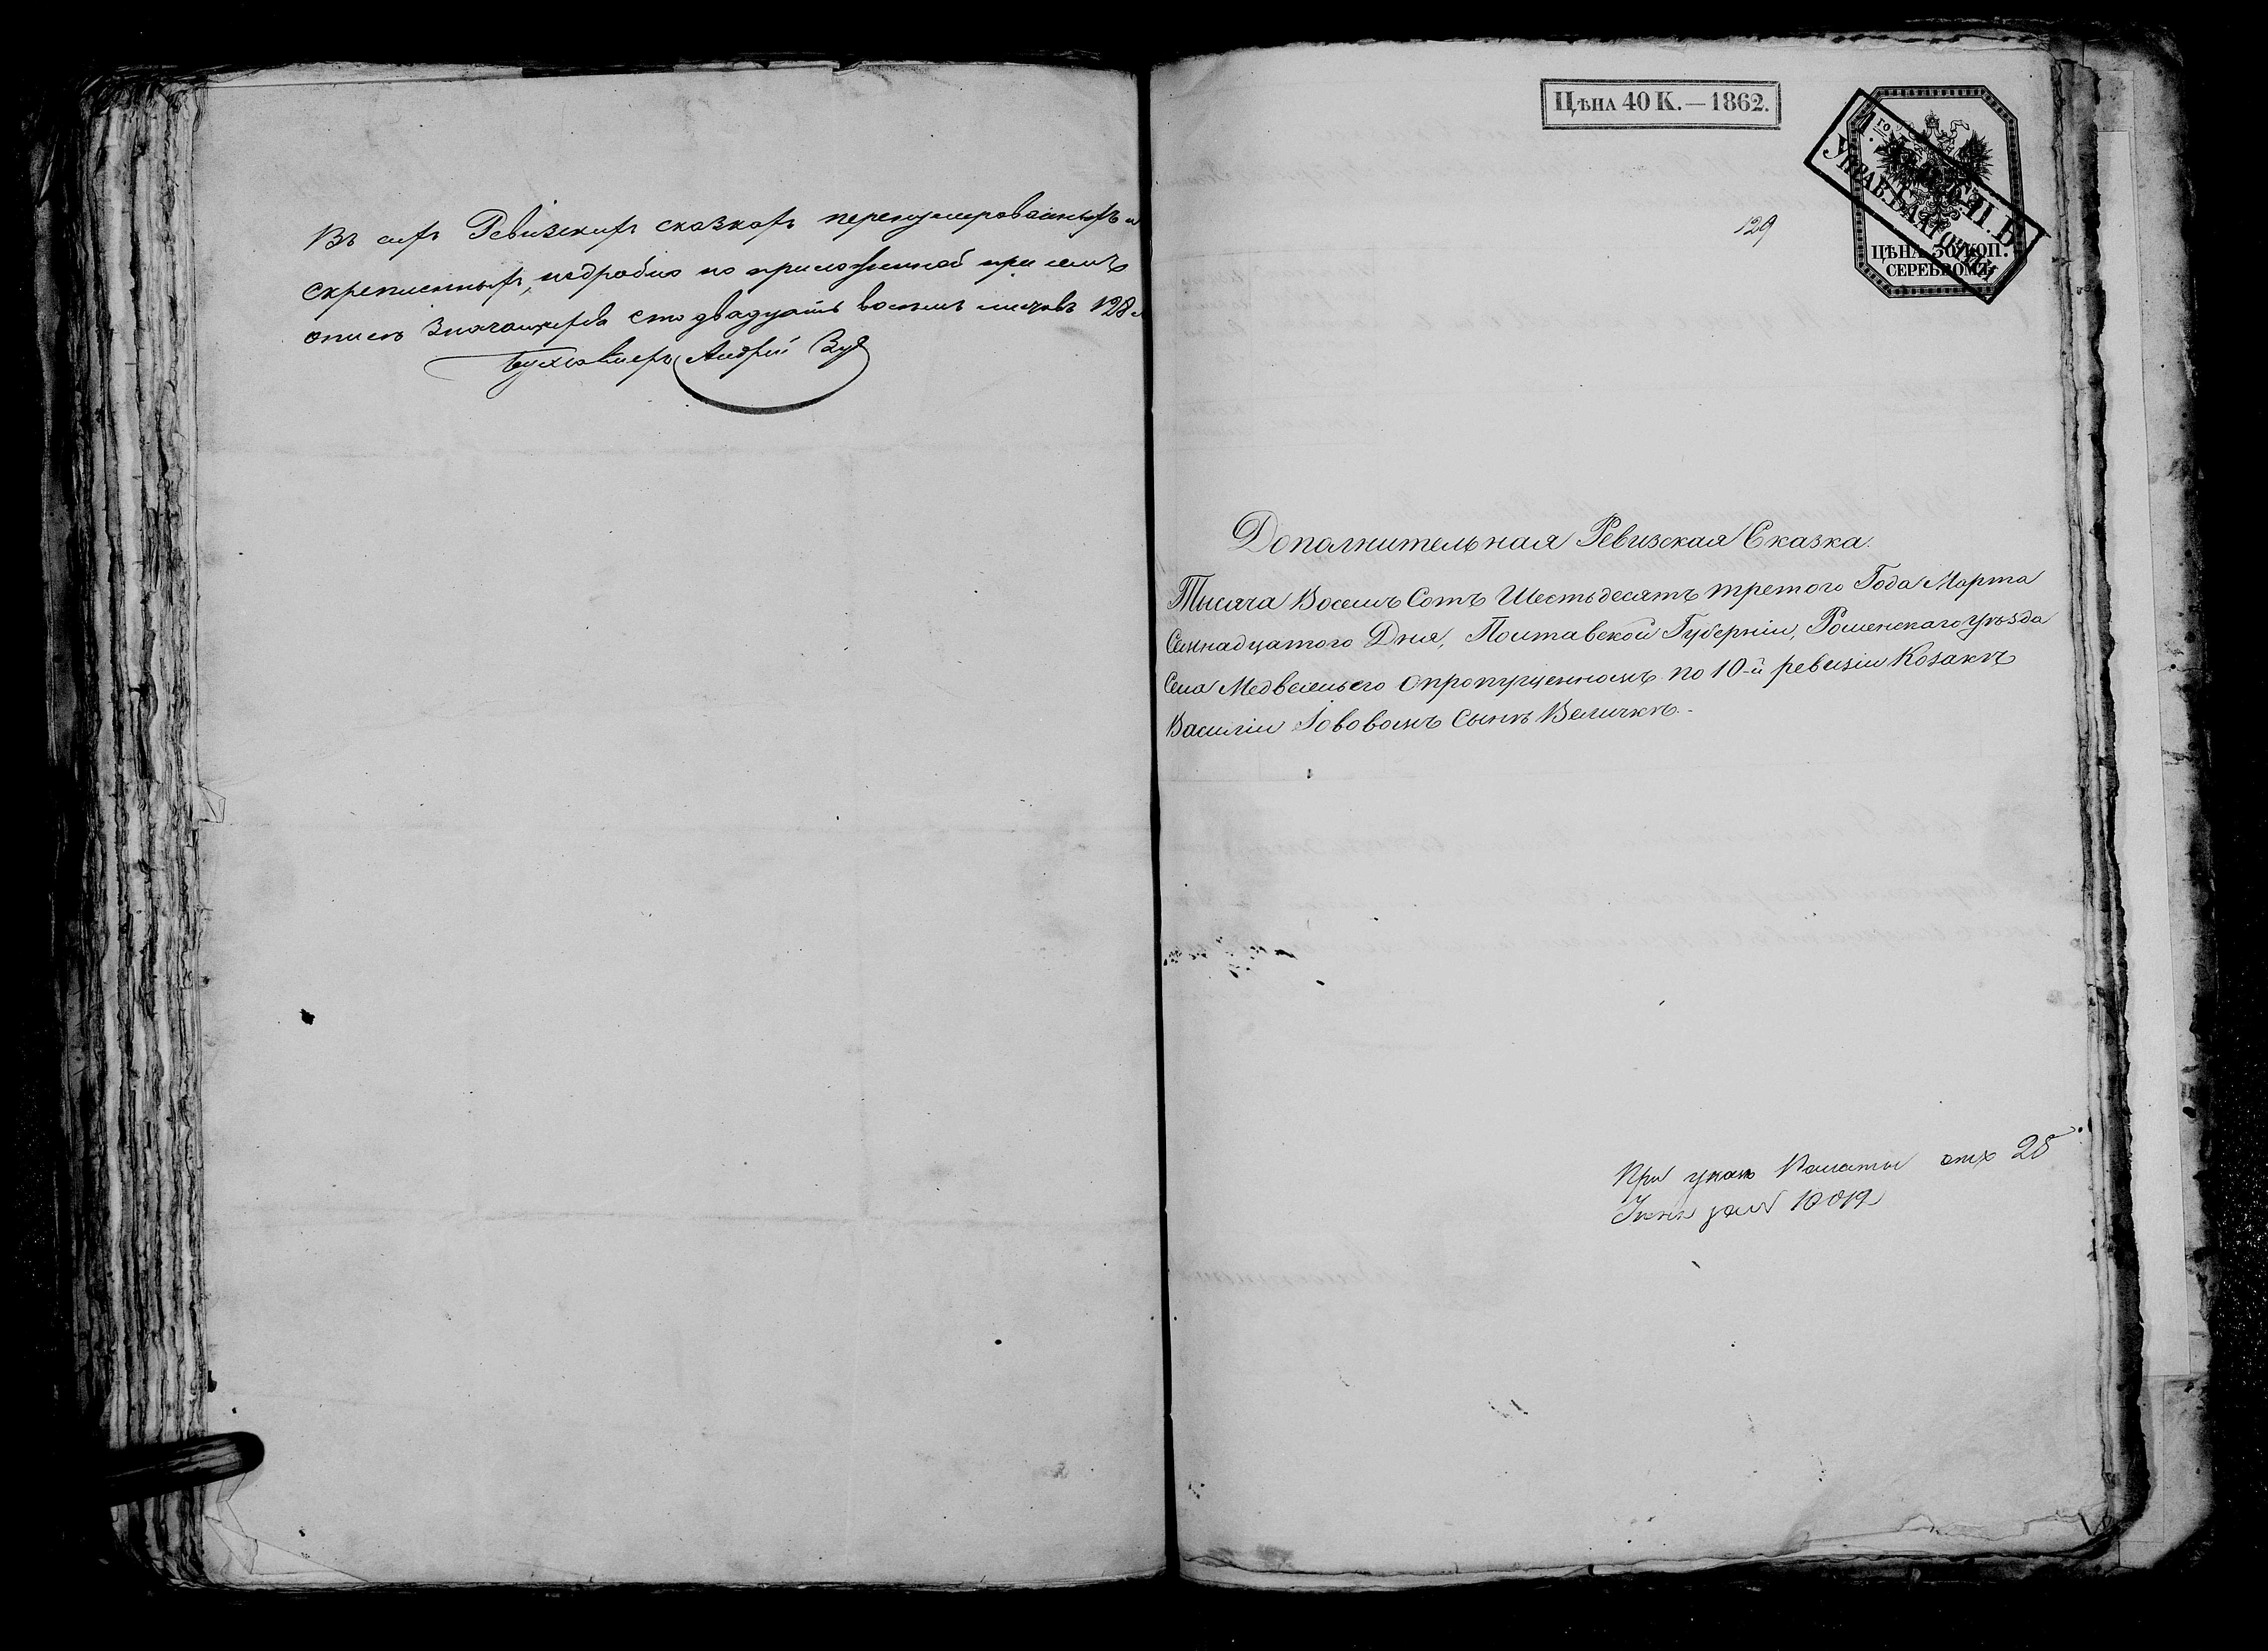 Въ сихъ Ревизскихъ сказкахъ перенумерованныхъ и
скрепленныхъ, подробно по приложенной при семъ
описи значащихся сто двадцать восемь листовъ 128
Бухгалтеръ Андрей
ЦѢНА 40 К. — 1862.
129
ЦѢНА 30 КОП.
СЕРЕБРОМЪ
Дополнительная Ревизская Сказка.
Тысяча Восемь Сотъ Шестьдесятъ третого Года Марта
Семнадцатого Дня, Полтавской Губерніи, Роменскаго уѣзда
Села Медвежьего о пропущенномъ по 10-й ревизіи Козакѣ
Василіи Іововомъ Сынѣ Величкѣ.-
При указѣ Палаты отъ 28
Іюня за № 10019